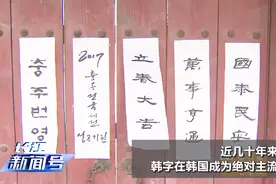 충주번영
2017
충주전국체전
立春大吉
萬事亨通
國泰民安
长江
新闻号
近几十年来
韩字在韩国成为绝对主流